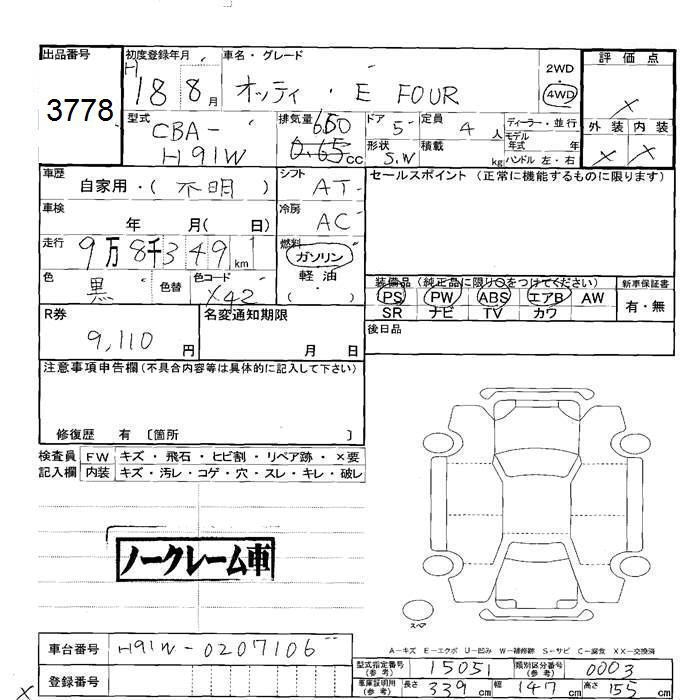 出品番号
3778
初度登録年月
H18 8月
車名・グレード
オッティ・E FOUR
2WD
4WD
評価点
X
外装 内装
X X
型式
CBA-
H91W
排気量
660
0.65cc
ドア
5
定員
4人
形状
S.W
積載
kg
ディーラー・並行
モデル
年式 年
ハンドル 左・右
車歴
自家用・(不明)
シフト
AT
セールスポイント (正常に機能するものに限ります)
車検
年 月( 日)
冷房
AC
走行
9万8千349km
燃料
ガソリン
軽油
( ・ )
色
黒
色替
色コード
X42
装備品 (純正品に限り○をつけてください)
PS PW ABS エアB AW
SR ナビ TV カワ
新車保証書
有・無
後日品
R券
9,110円
名変通知期限
月 日
注意事項申告欄 (不具合内容等は具体的に記入して下さい)
修復歴 有 〔箇所 〕
検査員
記入欄
FW キズ・飛石・ヒビ割・リペア跡・×要
内装 キズ・汚レ・コゲ・穴・スレ・キレ・破レ
ノークレーム車
スペア
A-キズ E-エクボ U-凹み W-補修跡 S-サビ C-腐食 XX-交換済
車台番号
H91W-0207106
登録番号
X
型式指定番号
(参考)
15051
類別区分番号
(参考)
0003
車庫証明用
(参考)
長さ 339cm 幅 147cm 高さ 155cm